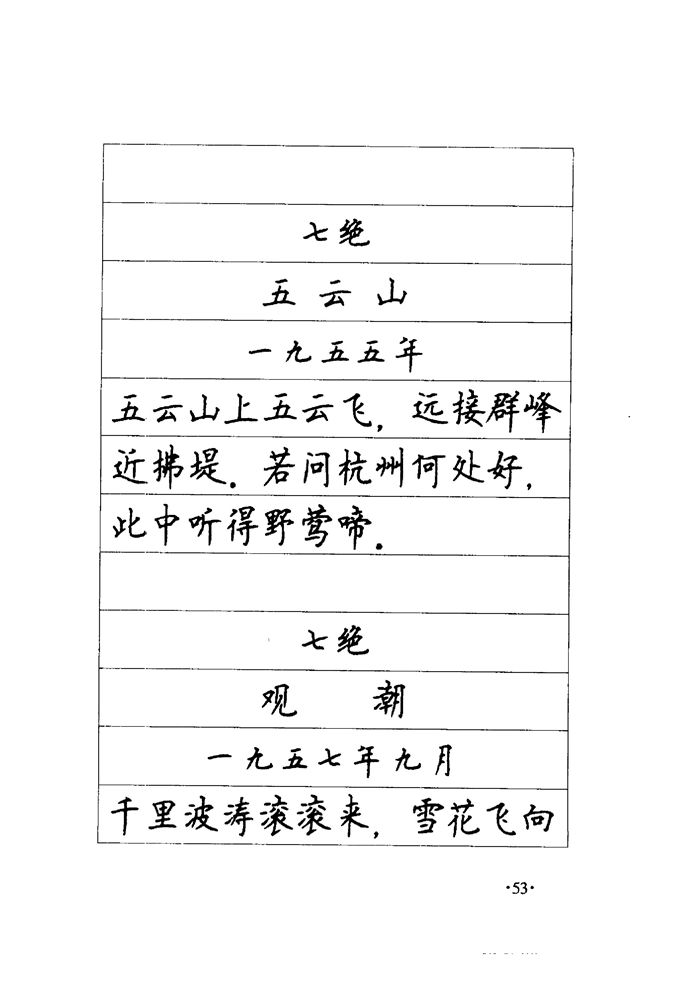 七绝
五云山
一九五五年
五云山上五云飞，远接群峰
近拂堤．若问杭州何处好，
此中听得野莺啼．
七绝
观 潮
一九五七年九月
千里波涛滚滚来，雪花飞向
·53·